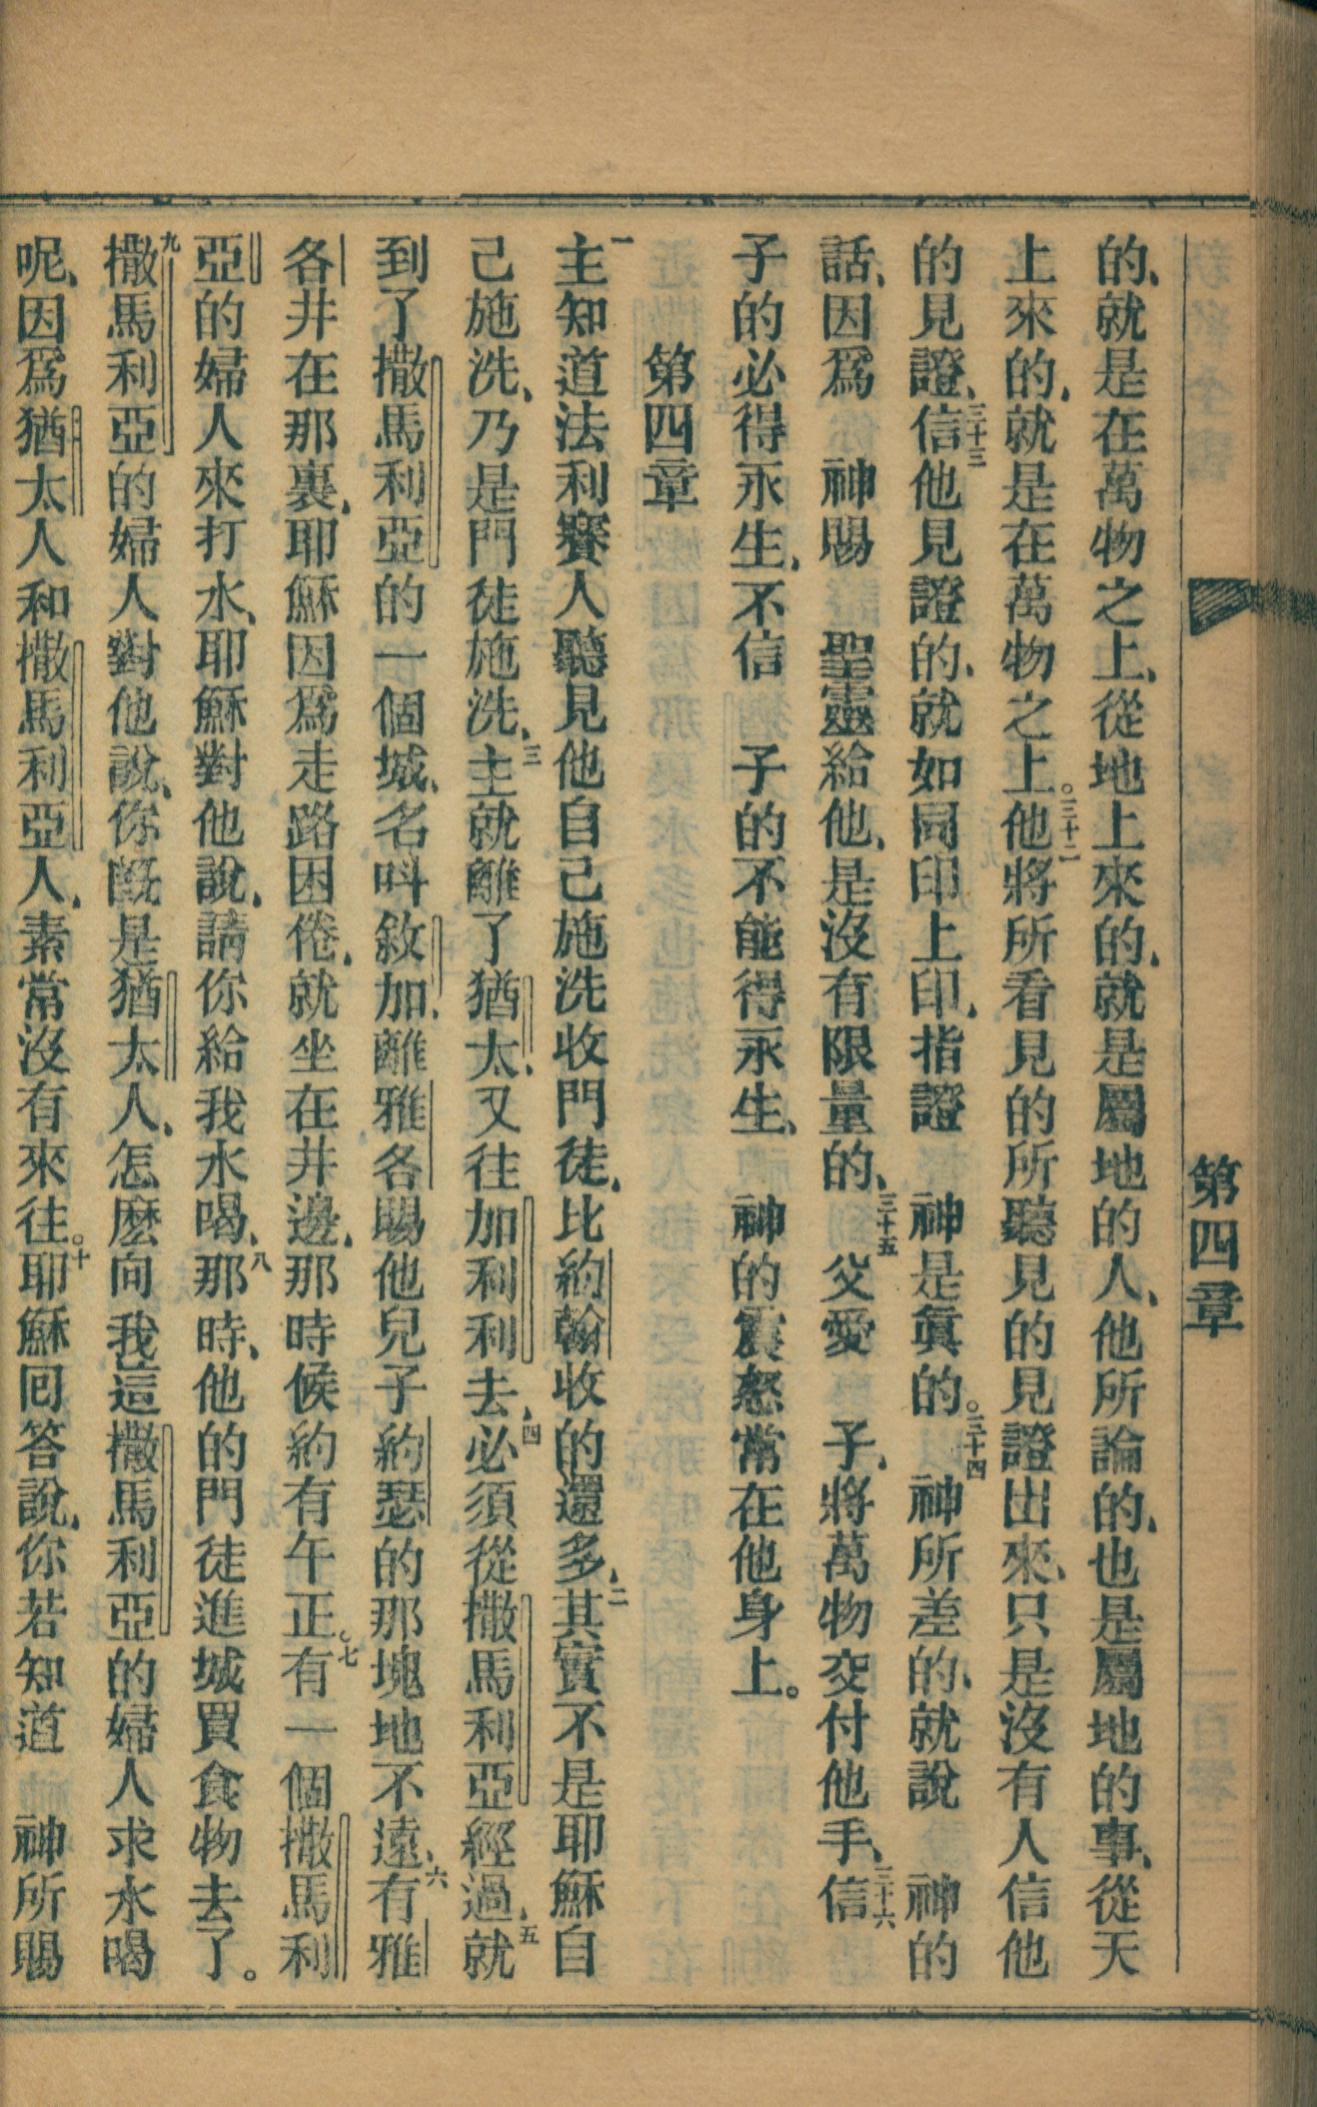 第四章
的、就是在萬物之上、從地上來的、就是屬地的人、他所論的、也是屬地的事、從天
上來的、就是在萬物之上。三十二他將所看見的所聽見的見證出來、只是沒有人信他
的見證、三十三信他見證的、就如同印上印、指證　神是眞的。三十四　神所差的、就說　神的
話、因爲　神賜　聖靈給他、是沒有限量的、三十五　父愛　子、將萬物交付他手、三十六信
子的必得永生、不信　子的不能得永生、　神的震怒常在他身上。
第四章
一主知道法利賽人聽見他自己施洗收門徒、比約翰收的還多、二其實不是耶穌自
己施洗、乃是門徒施洗、三主就離了猶太、又往加利利去、四必須從撒馬利亞經過、五就
到了撒馬利亞的一個城、名呌敘加、離雅各賜他兒子約瑟的那塊地不遠、六有雅
各井在那裏、耶穌因爲走路困倦、就坐在井邊、那時候約有午正。七有一個撒馬利
亞的婦人來打水、耶穌對他說、請你給我水喝、八那時、他的門徒進城買食物去了。
九撒馬利亞的婦人對他說、你旣是猶太人、怎麽向我這撒馬利亞的婦人求水喝
呢、因爲猶太人和撒馬利亞人、素常沒有來往。十耶穌回答說、你若知道　神所賜